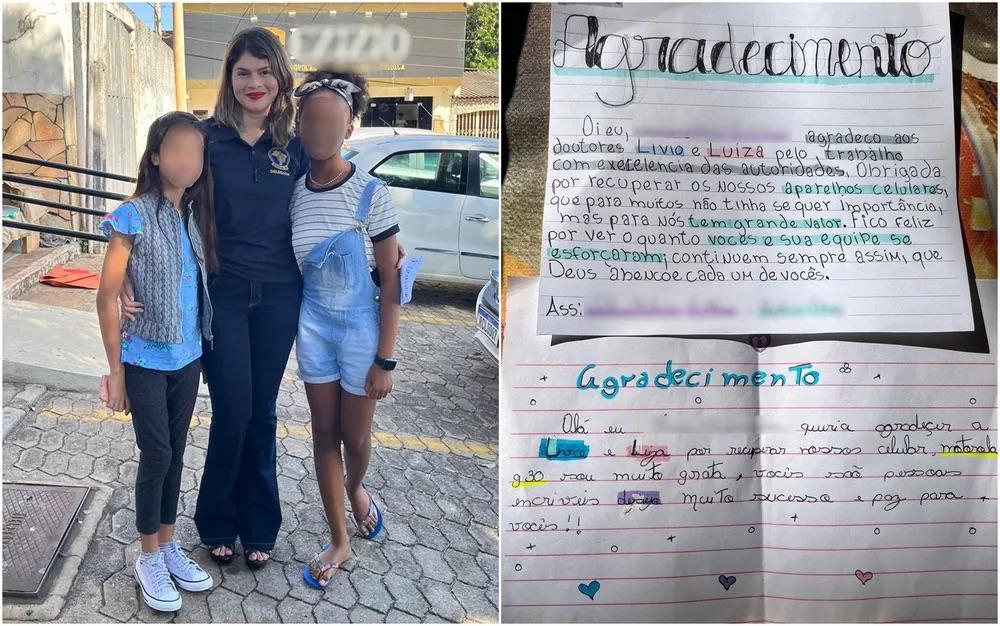 DELEGADA
Agradecimento
Oi eu, agradeço aos
doutores Livio e Luiza pelo trabalho
com execelencia das autoridades, Obrigada
por recuperar os nossos aparelhos celulares,
que para muitos não tinha se quer importância,
mas para nós tem grande valor. Fico feliz
por ver o quanto vocês e sua equipe se
esforcaram; continuem sempre assim, que
Deus abencoe cada um de vocês.
Ass:
Agradecimento
Olá eu queria agradeçer a
e Luza por recuperar nossos celular, motorola
g30 sou muito grata, vocês são pessoas
incriveis desejo muito sucesso e paz para
vocês!!